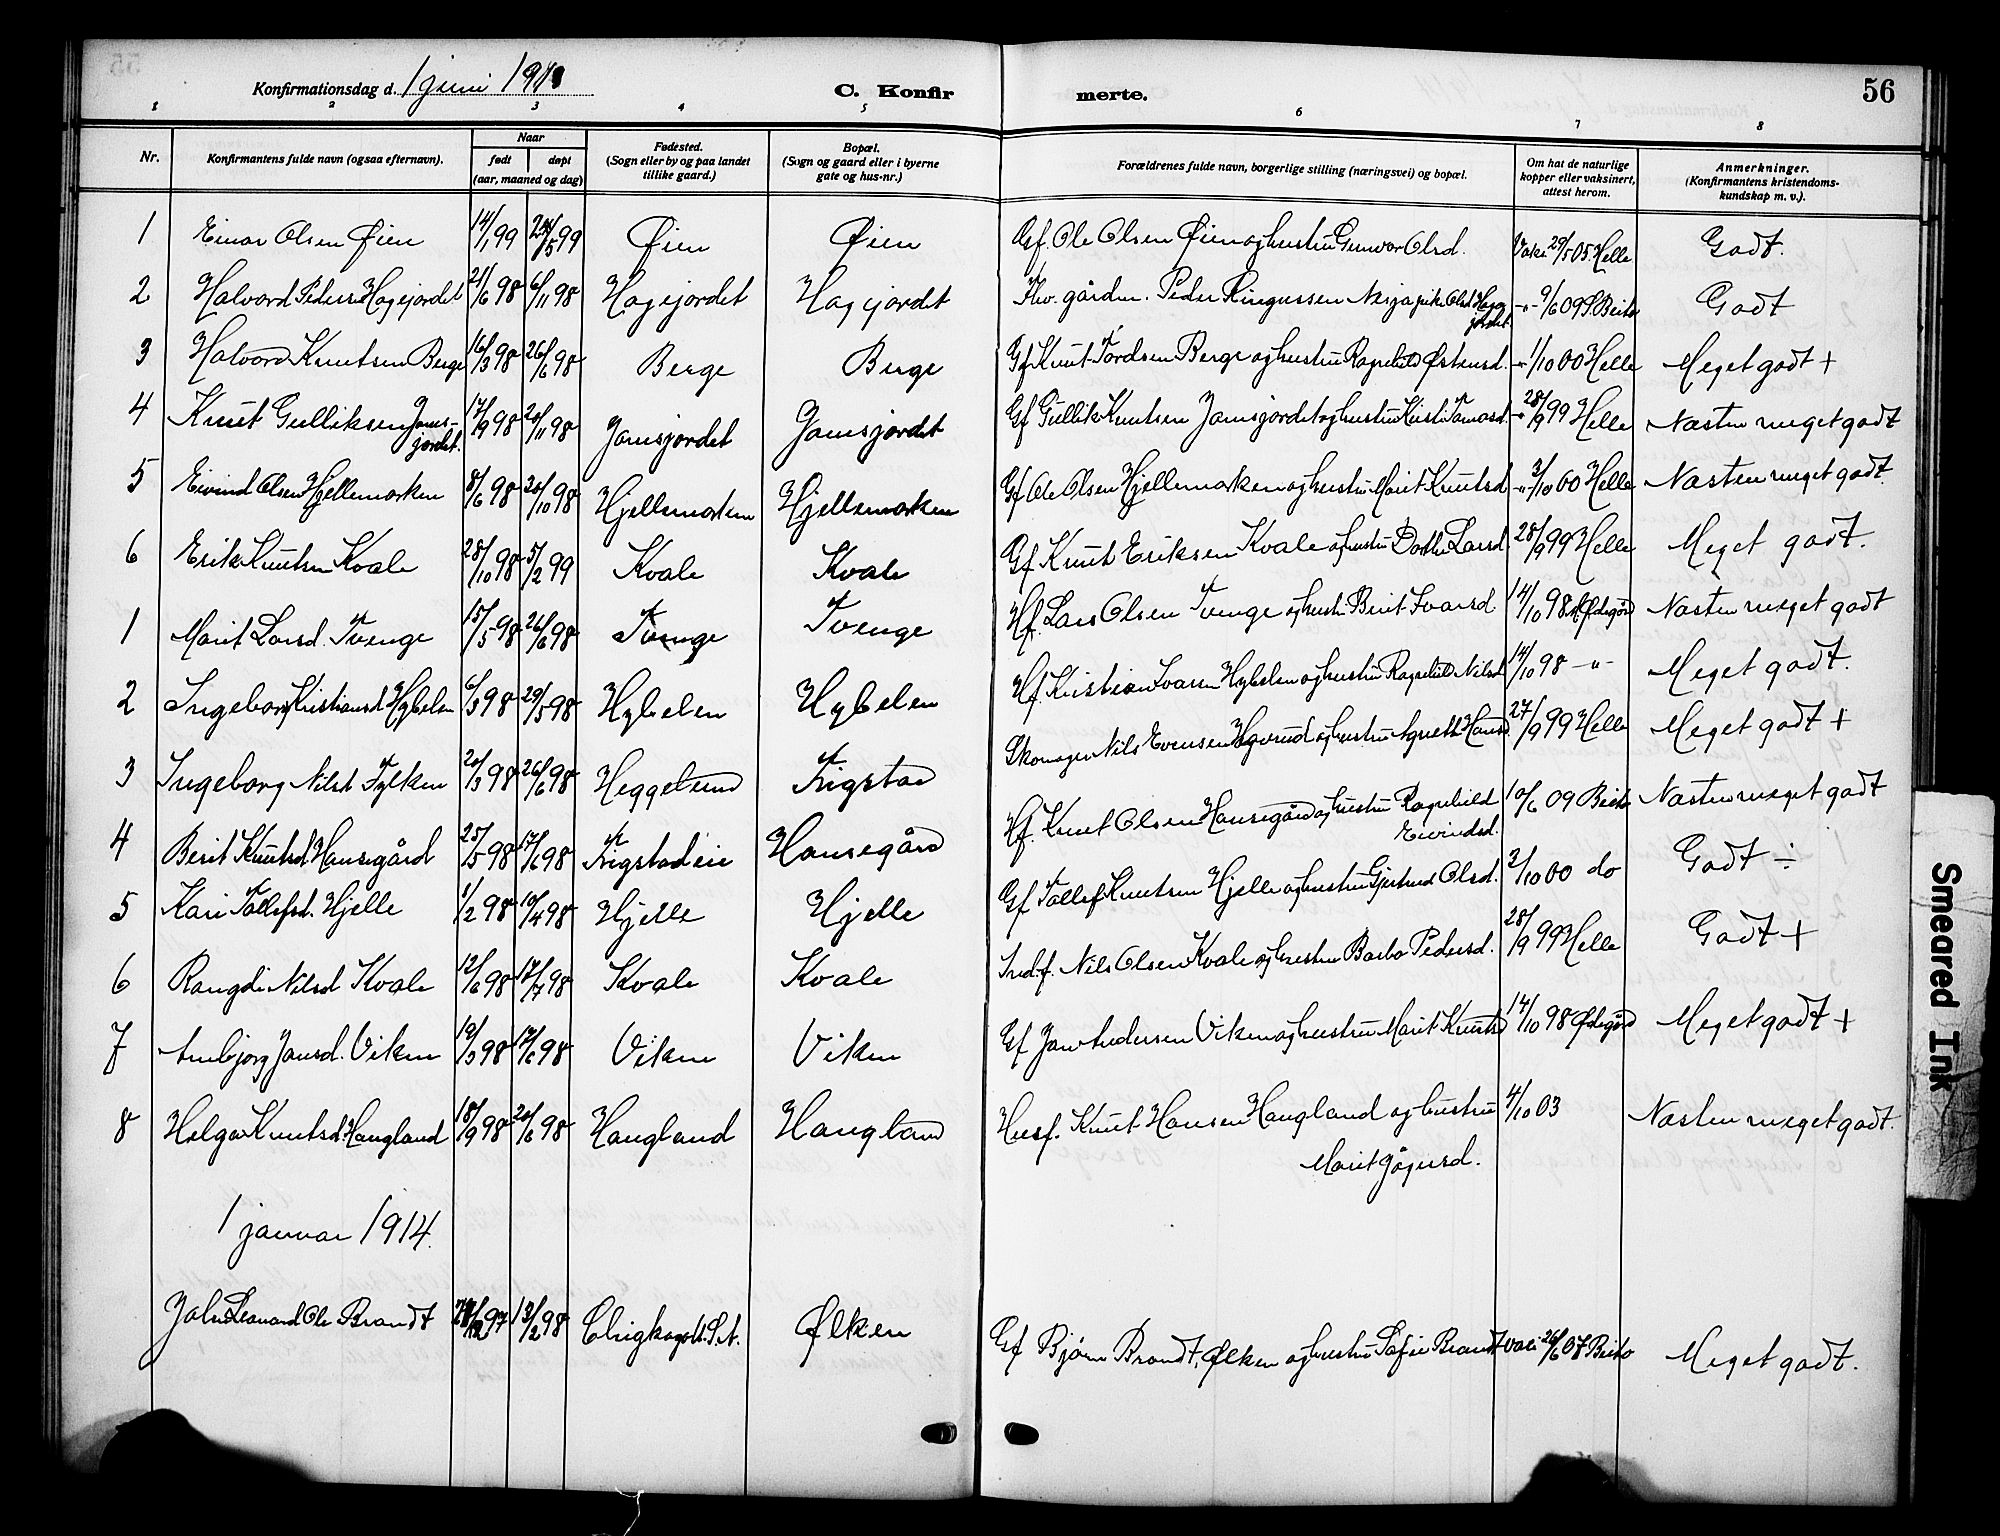 56
Konfirmationsdag d. 1 juni 191
C. Konfirmerte.
1 2 3 4 5 6 7 8
Nr. Konfirmantens fulde navn (ogsaa efternavn). Naar født døpt (aar, maaned og dag) Fødested. (Sogn eller by og paa landet tillike gaard.) Bopæl. (Sogn og gaard eller i byerne gate og hus-nr.) Forældrenes fulde navn, borgerlige stilling (næringsvei) og bopæl. Om hat de naturlige kopper eller vaksinert, attest herom. Anmerkninger. (Konfirmantens kristendomskundskap m. v.).
1 Einar Olsen Øien 14/1 99 /5 99 Øien Øien Gf. Ole Olsen Øien og hustru Gunvor Olsd. Vaks 29/5 05. Helle Godt.
2 Halvord Peders Hagejordet 21/6 98 6/11 98 Hagejordet Hagejordet gården. Peder Ringussen Olsd Hage jordet -"- 9/6 09 S. Beito Godt
3 Halvord Knutsen Berge 16/3 98 26/6 98 Berge Berge Gf Knut Tordsen Berge og hustru Ragnhild Østensd. -"- 1/10 00 Helle Meget godt +
4 Knut Gulliksen Jamsjordet. 17/9 98 20/11 98 Jamsjordet Jamsjordet Gf Gullik Knutsen Jamsjordet og hustru Kirsti Tomasd. -"- 28/9 99 Helle Næsten meget godt
5 Eivind Olsen Hjellemorken 8/6 98 30/10 98 Hjellemorken Hjellemorken Gf Ole Olsen Hjellemorken og hustru Marit Knutsd -"- 3/10 00 Helle Næsten meget godt.
6 Erik Knutsen Kvale 28/10 98 5/2 99 Kvale Kvale Gf. Knut Eriksen Kvale og hustru Larsd. 28/9 99 Helle Meget godt.
1 Marit Larsd. Tvenge 15/5 98 26/6 98 Tvenge Tvenge Hf. Lars Olsen Tvenge og hustr Berit Ivarsd 14/10 98 Ødegård Næsten meget godt
2 Ingeborg Kristiansd Hybelen 6/3 98 29/5 98 Hybelen Hybelen Hf. Kristian Ivarsen Hybelen og hustru Ragnhild Nilsd 14/10 98 -"- Meget godt.
3 Ingeborg Nilsd Fylken 20/3 98 26/6 98 Heggelund Trigstad Skomager Nils Evensen og hustru Agneth Hansd 27/9 99 Helle Meget godt +
4 Berit Knutsd Hansegård 25/5 98 17/6 98 Trigstadeie Hansegård Hf. Knut Olsen Hansegård og hustru Ragnhild Eivindsd. 10/6 09 Beito Næsten meget godt
5 Kari Tollefsd. Hjelle 1/2 98 10/4 98 Hjelle Hjelle Gf Tollef Knutsen Hjelle og hustru Gjertrud Olsd. 3/10 00 do Godt ÷
6 Rangdi Nilsd Kvale 12/6 98 17/7 98 Kvale Kvale Ind.f. Nils Olsen Kvale og hustru Barbo Pedersd. 28/9 99 Helle Godt +
7 Anbjørg Jansd. Viken 19/3 98 17/6 98 Viken Viken Gf Jan Andersen Viken og hustru Marit Knutsd 14/10 98 Ødegård Meget godt +
8 Helga Knutsd Haugland 18/9 98 20/6 98 Haugland Haugland Husf. Knut Hansen Haugland og hustru Marit 4/10 03 Næsten meget godt.
1 januar 1914.
John Leonard Ole Brandt /12 97 13/2 98 S. A. Ølken Gf Bjørn Brandt, Ølken og hustru Sofie Brandt vaks 26/6 07 Beito Meget godt.
Smeared Ink